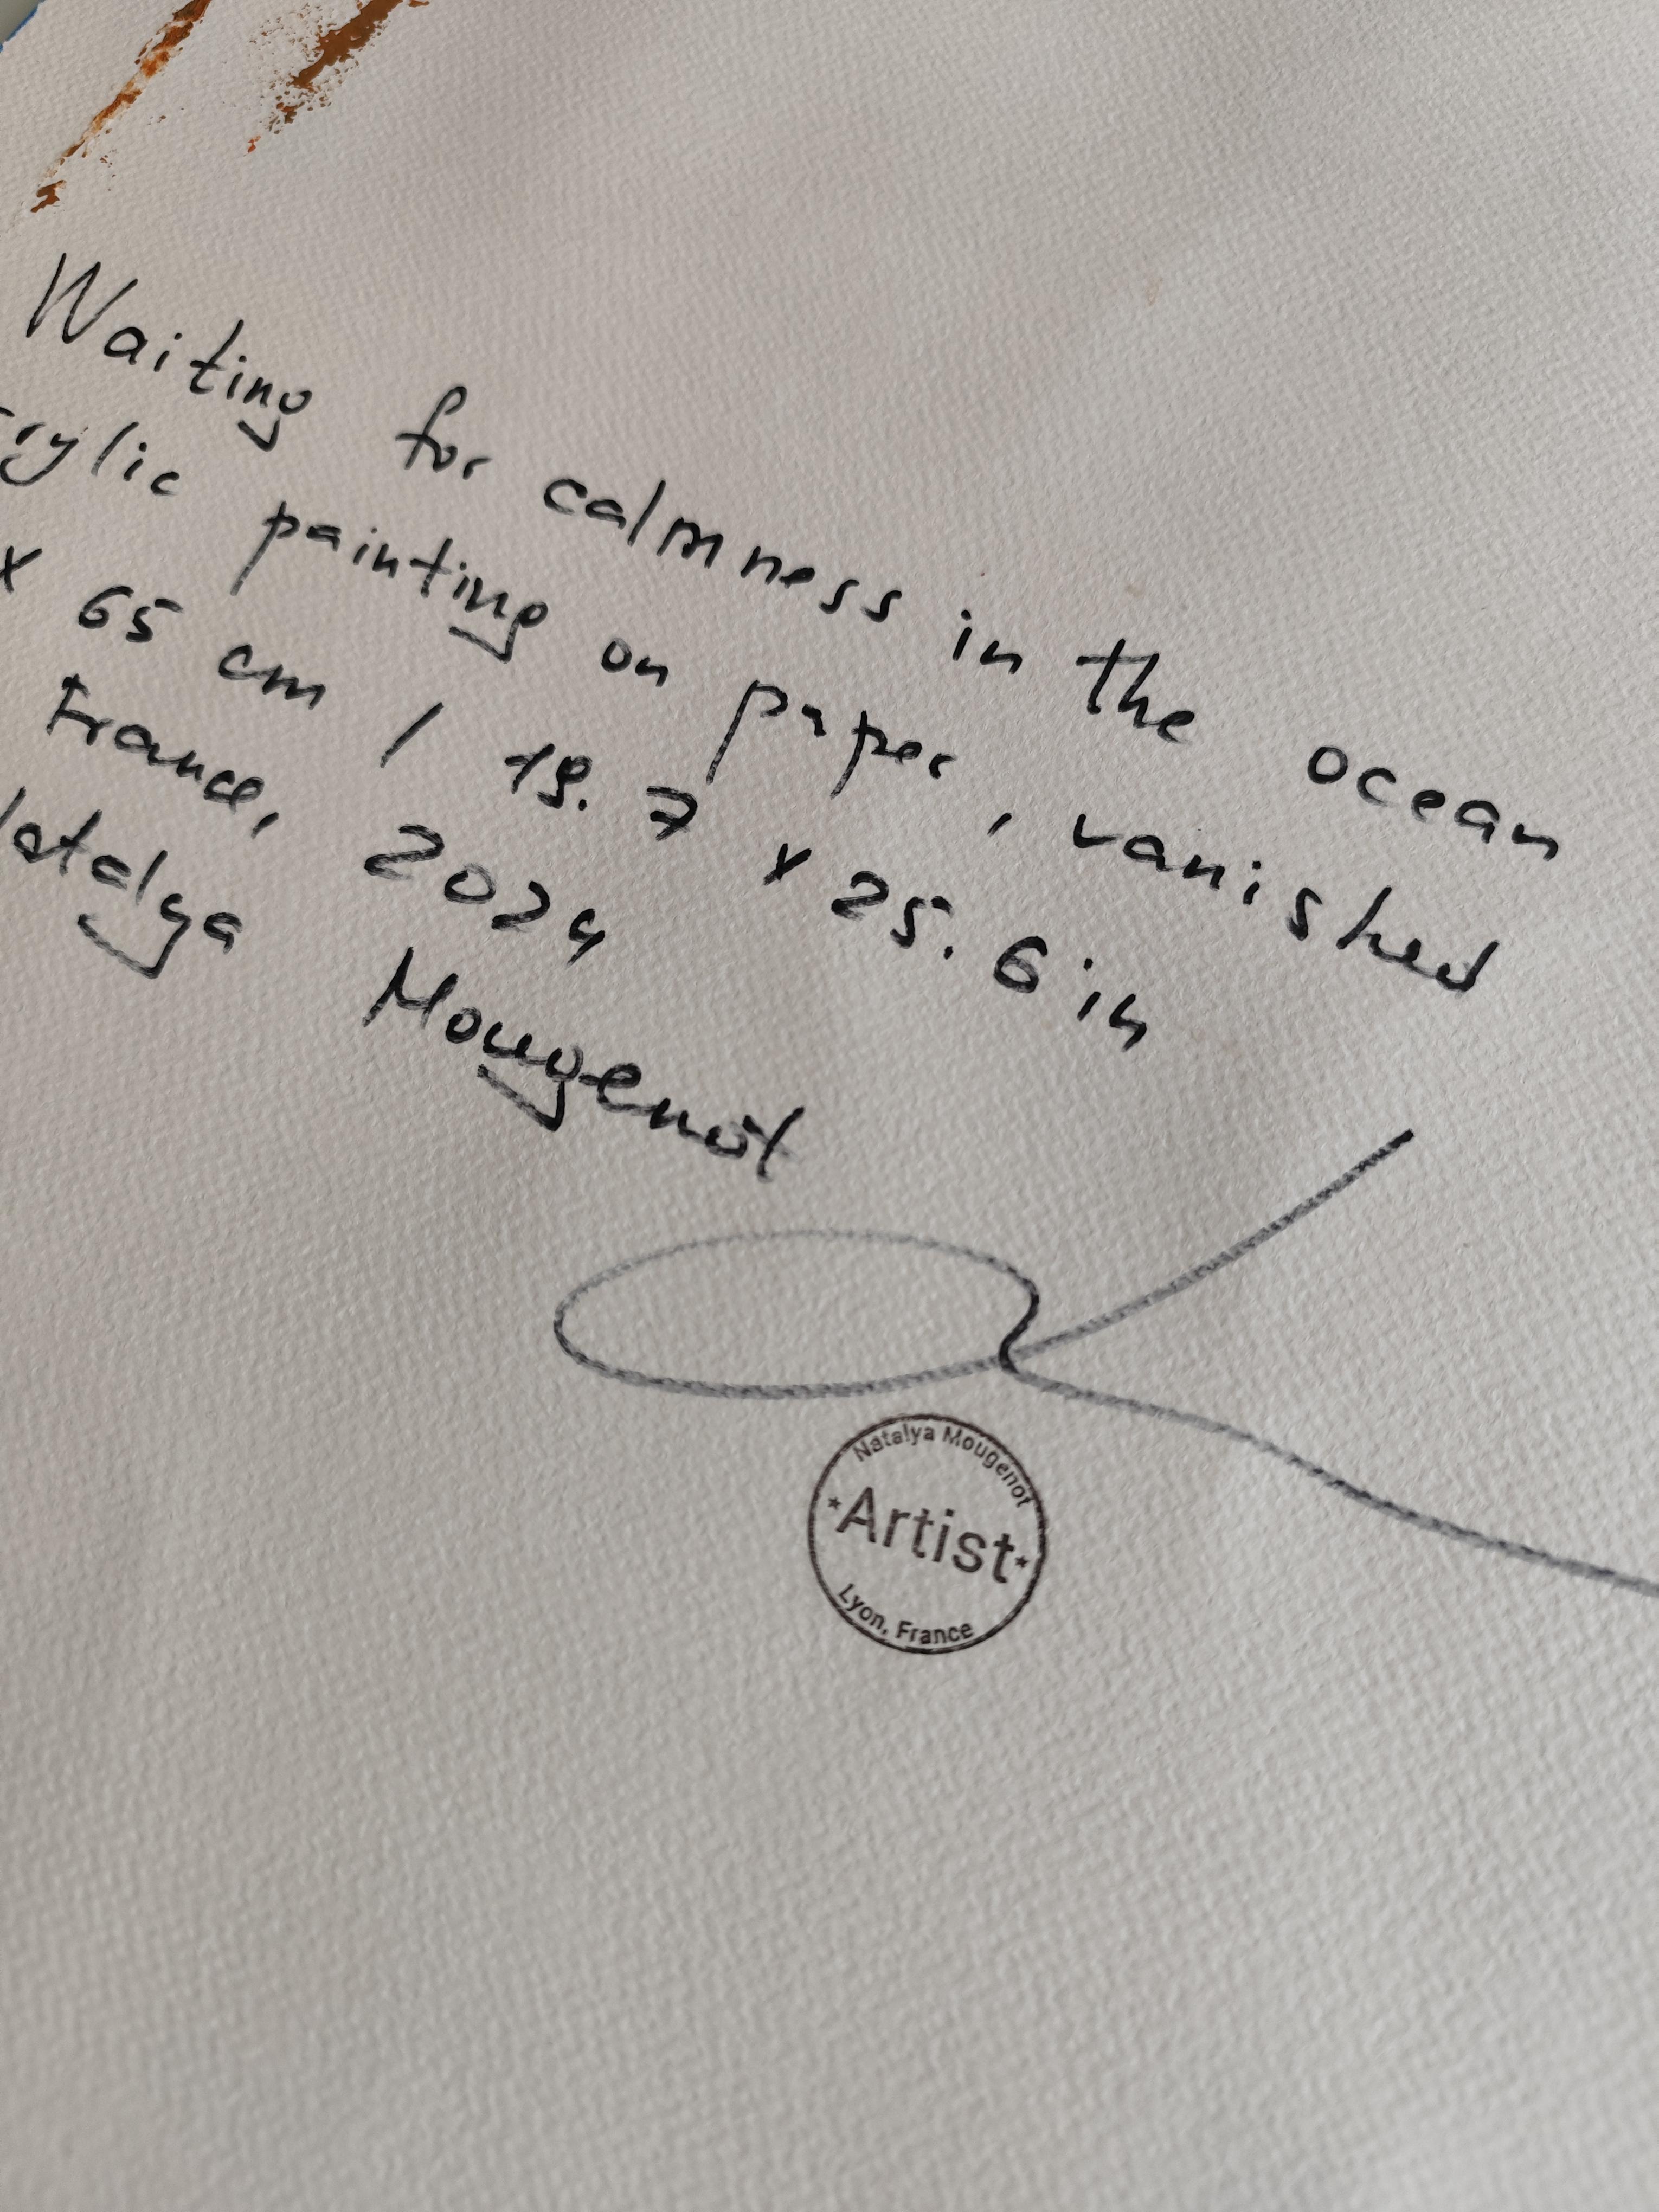 Waiting for calmness in the ocean
rylic painting on paper, vanished
x 65 cm / 19.7 x 25.6 in
France, 2024
Natalya Mougenot
Natalya Mougenot
*Artist*
Lyon, France